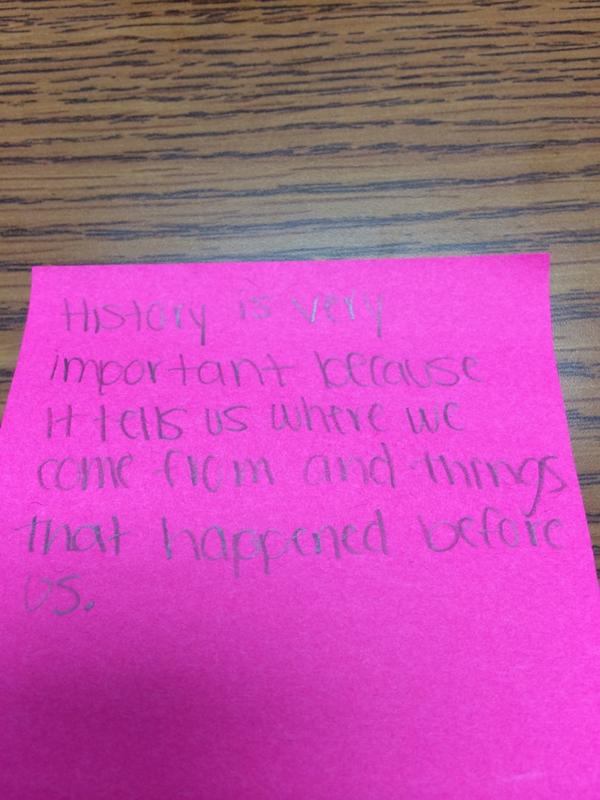 History is very
important because
It tells us where we
come from and things
that happened before
us.